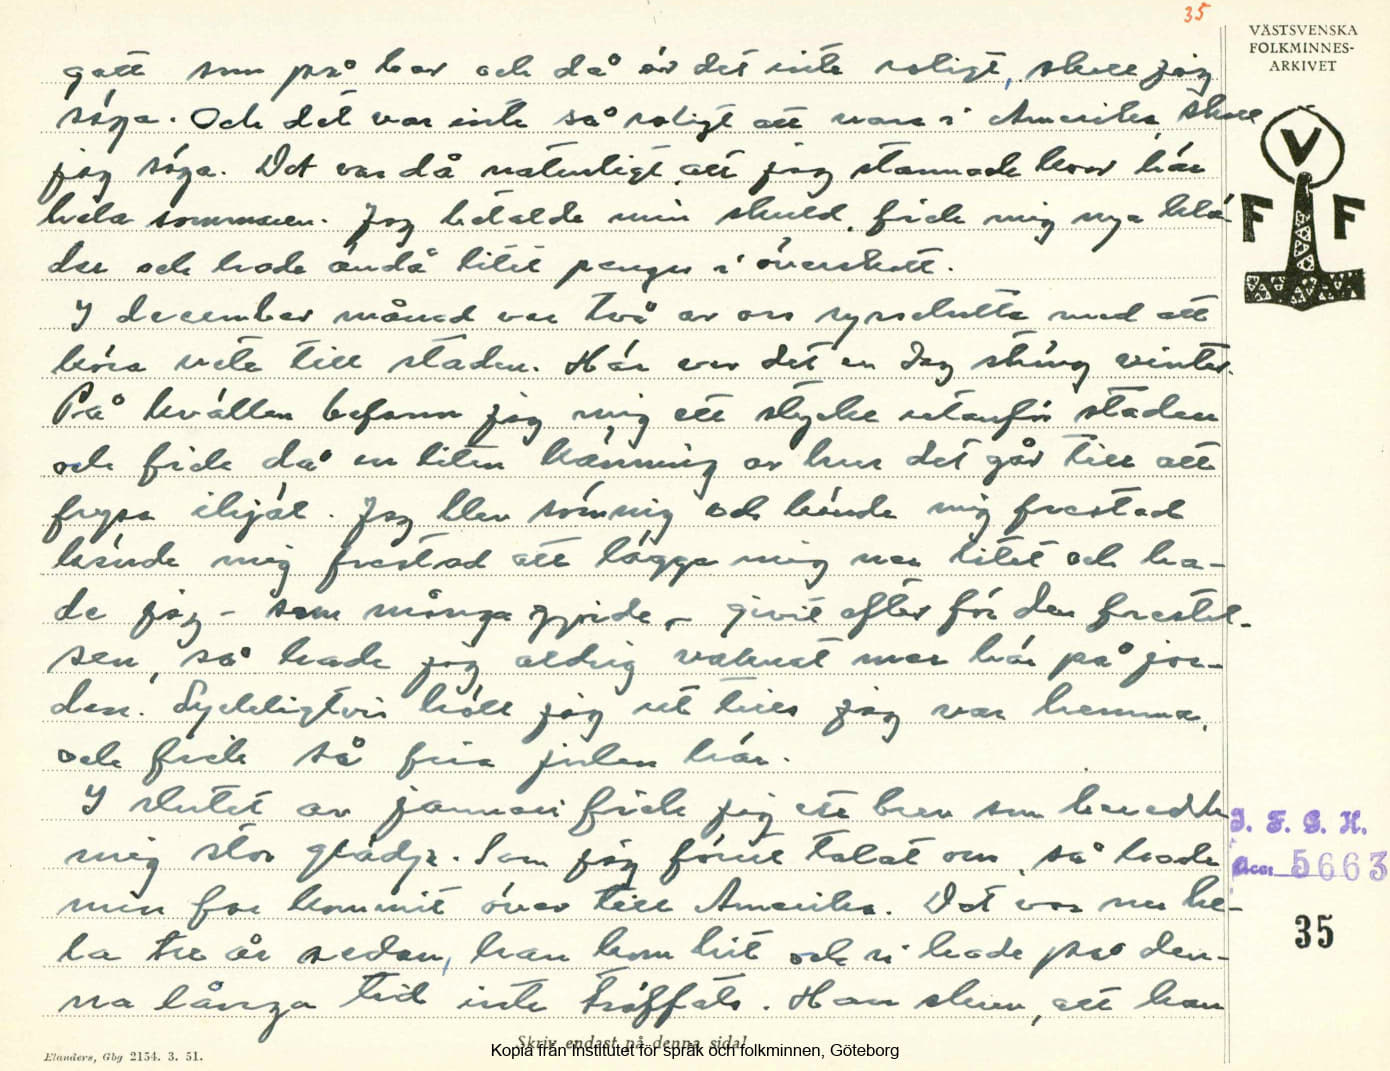 35
VÄSTSVENSKA
FOLKMINNES-
ARKIVET
gott som på har och då är det inte roligt, skall jag
säga. Och det var inte så roligt att vara i Amerika skall
jag säga. Det var då naturligt att jag stannade kvar här
hela sommaren. Jag betalde min skuld, fick mig nya klä-
der och hade ändå litet pengar i överskott.
I december månad var två av oss sysselsatta med att
köra vete till staden. Här var det en dag sträng vinter.
På kvällen befann jag mig ett stycke utanför staden
och fick då en liten känning av hur det går till att
frysa ihjäl. Jag blev sömnig och kände mig frestad
kände mig frestad att lägga mig ner litet och ha-
de jag – som många gjorde – givit efter för den frestel-
sen, så hade jag aldrig vaknat mer här på jor-
den. Lyckligtvis höll jag ut tills jag var hemma,
och fick så fira julen här.
I slutet av januari fick jag ett brev som beredde
mig stor glädje. Som jag förut talat om så hade
min far kommit över till Amerika. Det var nu he-
la tre år sedan, han kom hit och vi hade på den-
na långa tid inte träffats. Han skrev, att han
V
F F
I. F. G. H.
Acc. 5663
35
Skriv endast på denna sida!
Elanders, Gbg 2154. 3. 51.
Kopia från Institutet för språk och folkminnen, Göteborg